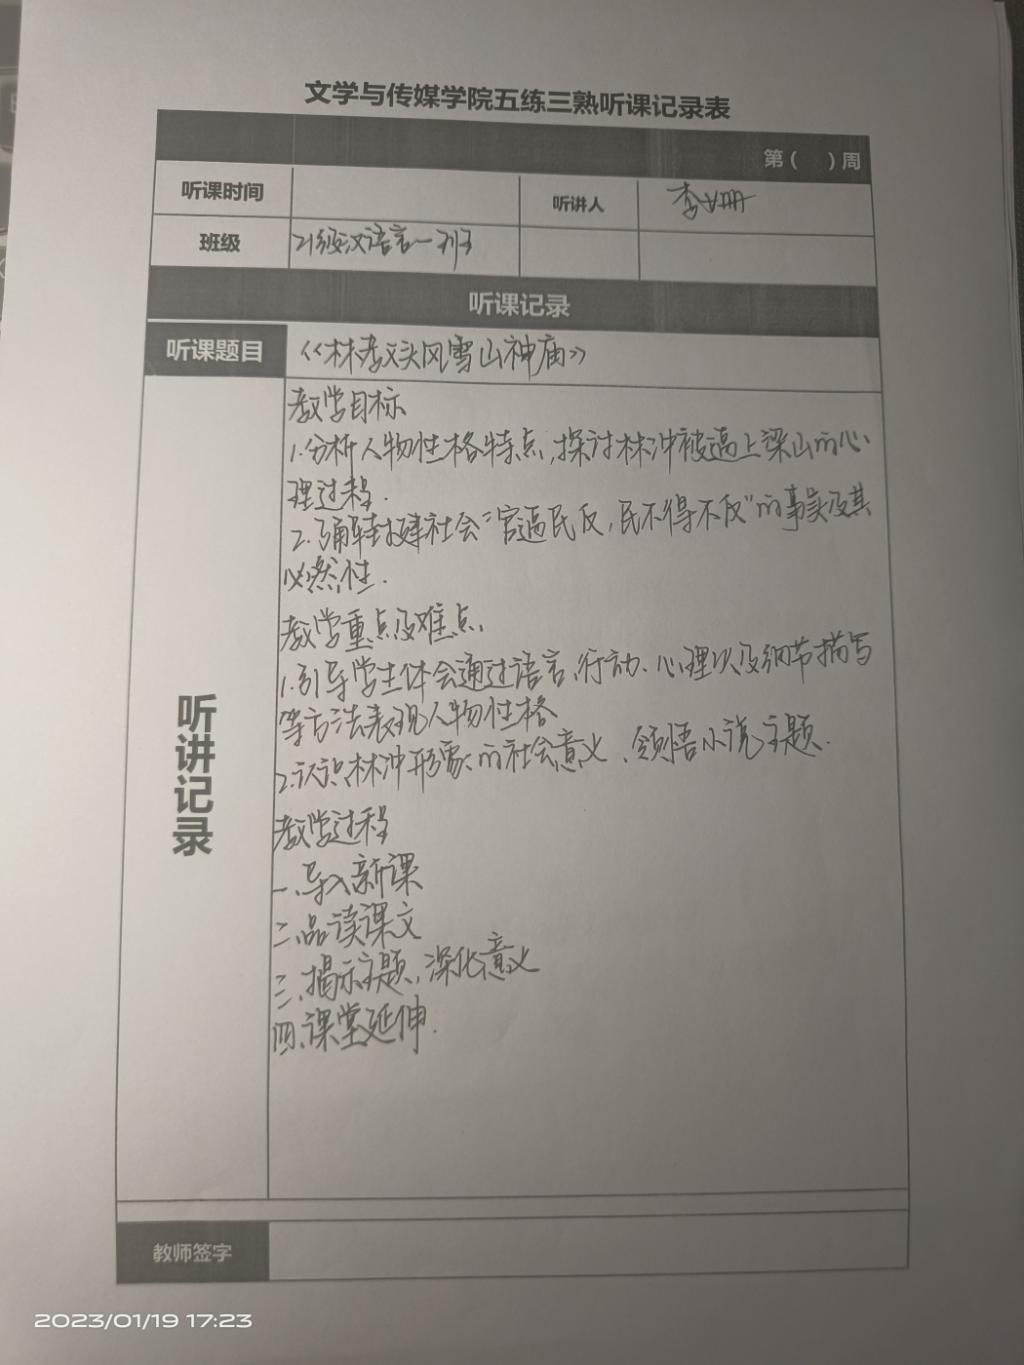 文学与传媒学院五练三熟听课记录表
第( )周
听课时间 听讲人 李姗
班级 21级汉语言一班
听课记录
听课题目 《林教头风雪山神庙》
听讲记录
教学目标
1.分析人物性格特点,探讨林冲被逼上梁山的心
理过程.
2.了解封建社会“官逼民反,民不得不反”的事实及其
必然性.
教学重点及难点.
1.引导学生体会通过语言、行动、心理以及细节描写
等方法表现人物性格
2.认识林冲形象的社会意义、领悟小说主题.
教学过程
一、导入新课
二、品读课文
三、揭示主题,深化意义
四、课堂延伸.
教师签字
2023/01/19 17:23